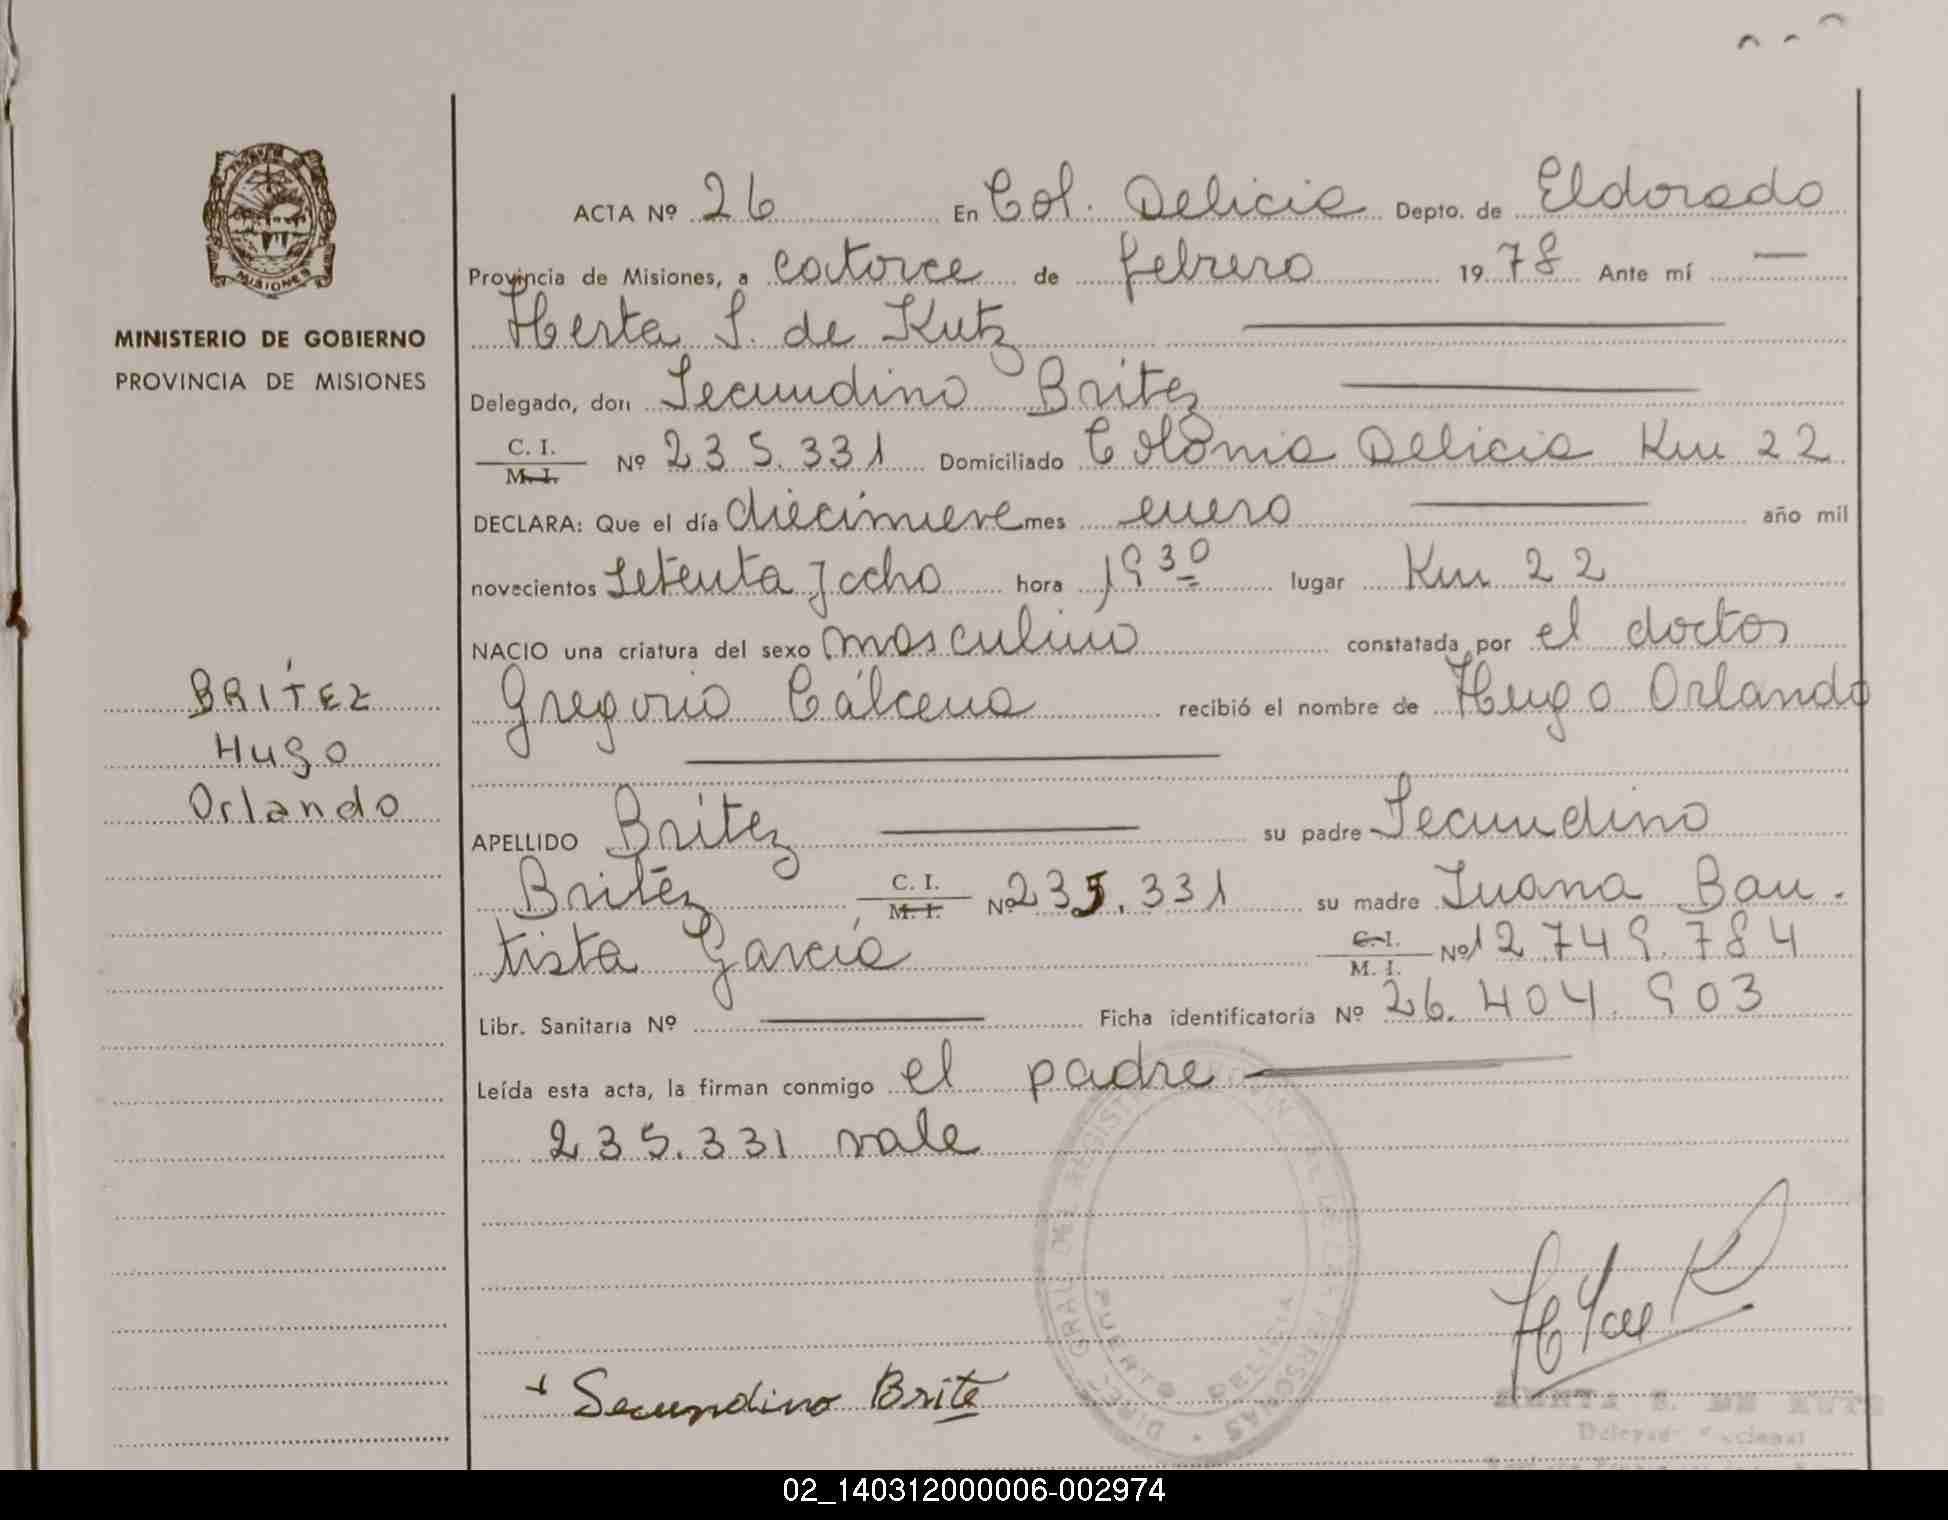 MISIONES
MINISTERIO DE GOBIERNO
PROVINCIA DE MISIONES
BRÍTEZ
Hugo
Orlando
ACTA Nº 26 En Col. Delicia Depto. de Eldorado
Provincia de Misiones, a catorce de febrero 1978 Ante mí —
Herta S. de Kutz
Delegado, don Secundino Britez
C. I.
M. I. Nº 235.331 Domiciliado Colonia Delicia Km 22
DECLARA: Que el día diecinueve mes enero año mil
novecientos setenta y ocho hora 19 30 lugar Km 22
NACIO una criatura del sexo masculino constatada por el doctor
Gregorio Cálcena recibió el nombre de Hugo Orlando
APELLIDO Brítez su padre Secundino
Britez C. I.
M. I. Nº 235.331 su madre Juana Bau-
tista García C. I.
M. I. Nº 12.749.784
Libr. Sanitaria Nº — Ficha identificatoria Nº 26.404.903
Leída esta acta, la firman conmigo el padre —
235.331 vale
+ Secundino Brite
DIREC. GRAL. DEL REGISTRO PROVINCIAL DE LAS PERSONAS
PUERTO DELICIA
HERTA S. DE KUTZ
02_140312000006-002974